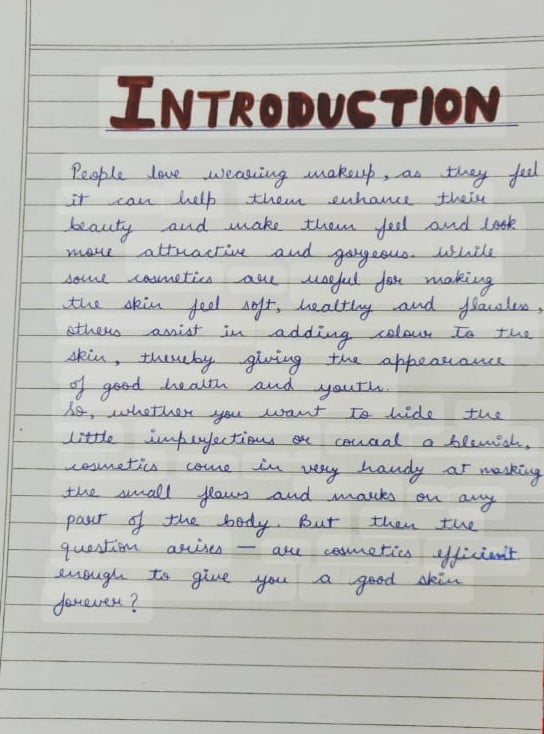 INTRODUCTION
People love wearing makeup, as they feel
it can help them enhance their
beauty and make them feel and look
more attractive and gorgeous. While
some cosmetics are useful for making
the skin feel soft, healthy and flawless,
others assist in adding colour to the
skin, thereby giving the appearance
of good health and youth.
So, whether you want to hide the
little imperfections or conceal a blemish,
cosmetics come in very handy at masking
the small flaws and marks on any
part of the body. But then the
question arises — are cosmetics efficient
enough to give you a good skin
forever?